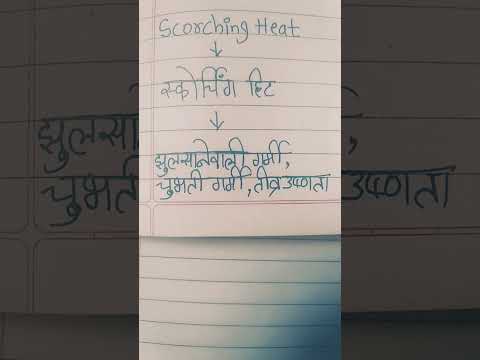 Scorching Heat
↓
स्कोर्चिंग हिट
↓
झुलसानेवाली गर्मी,
चुभती गर्मी, तीव्र उष्णता